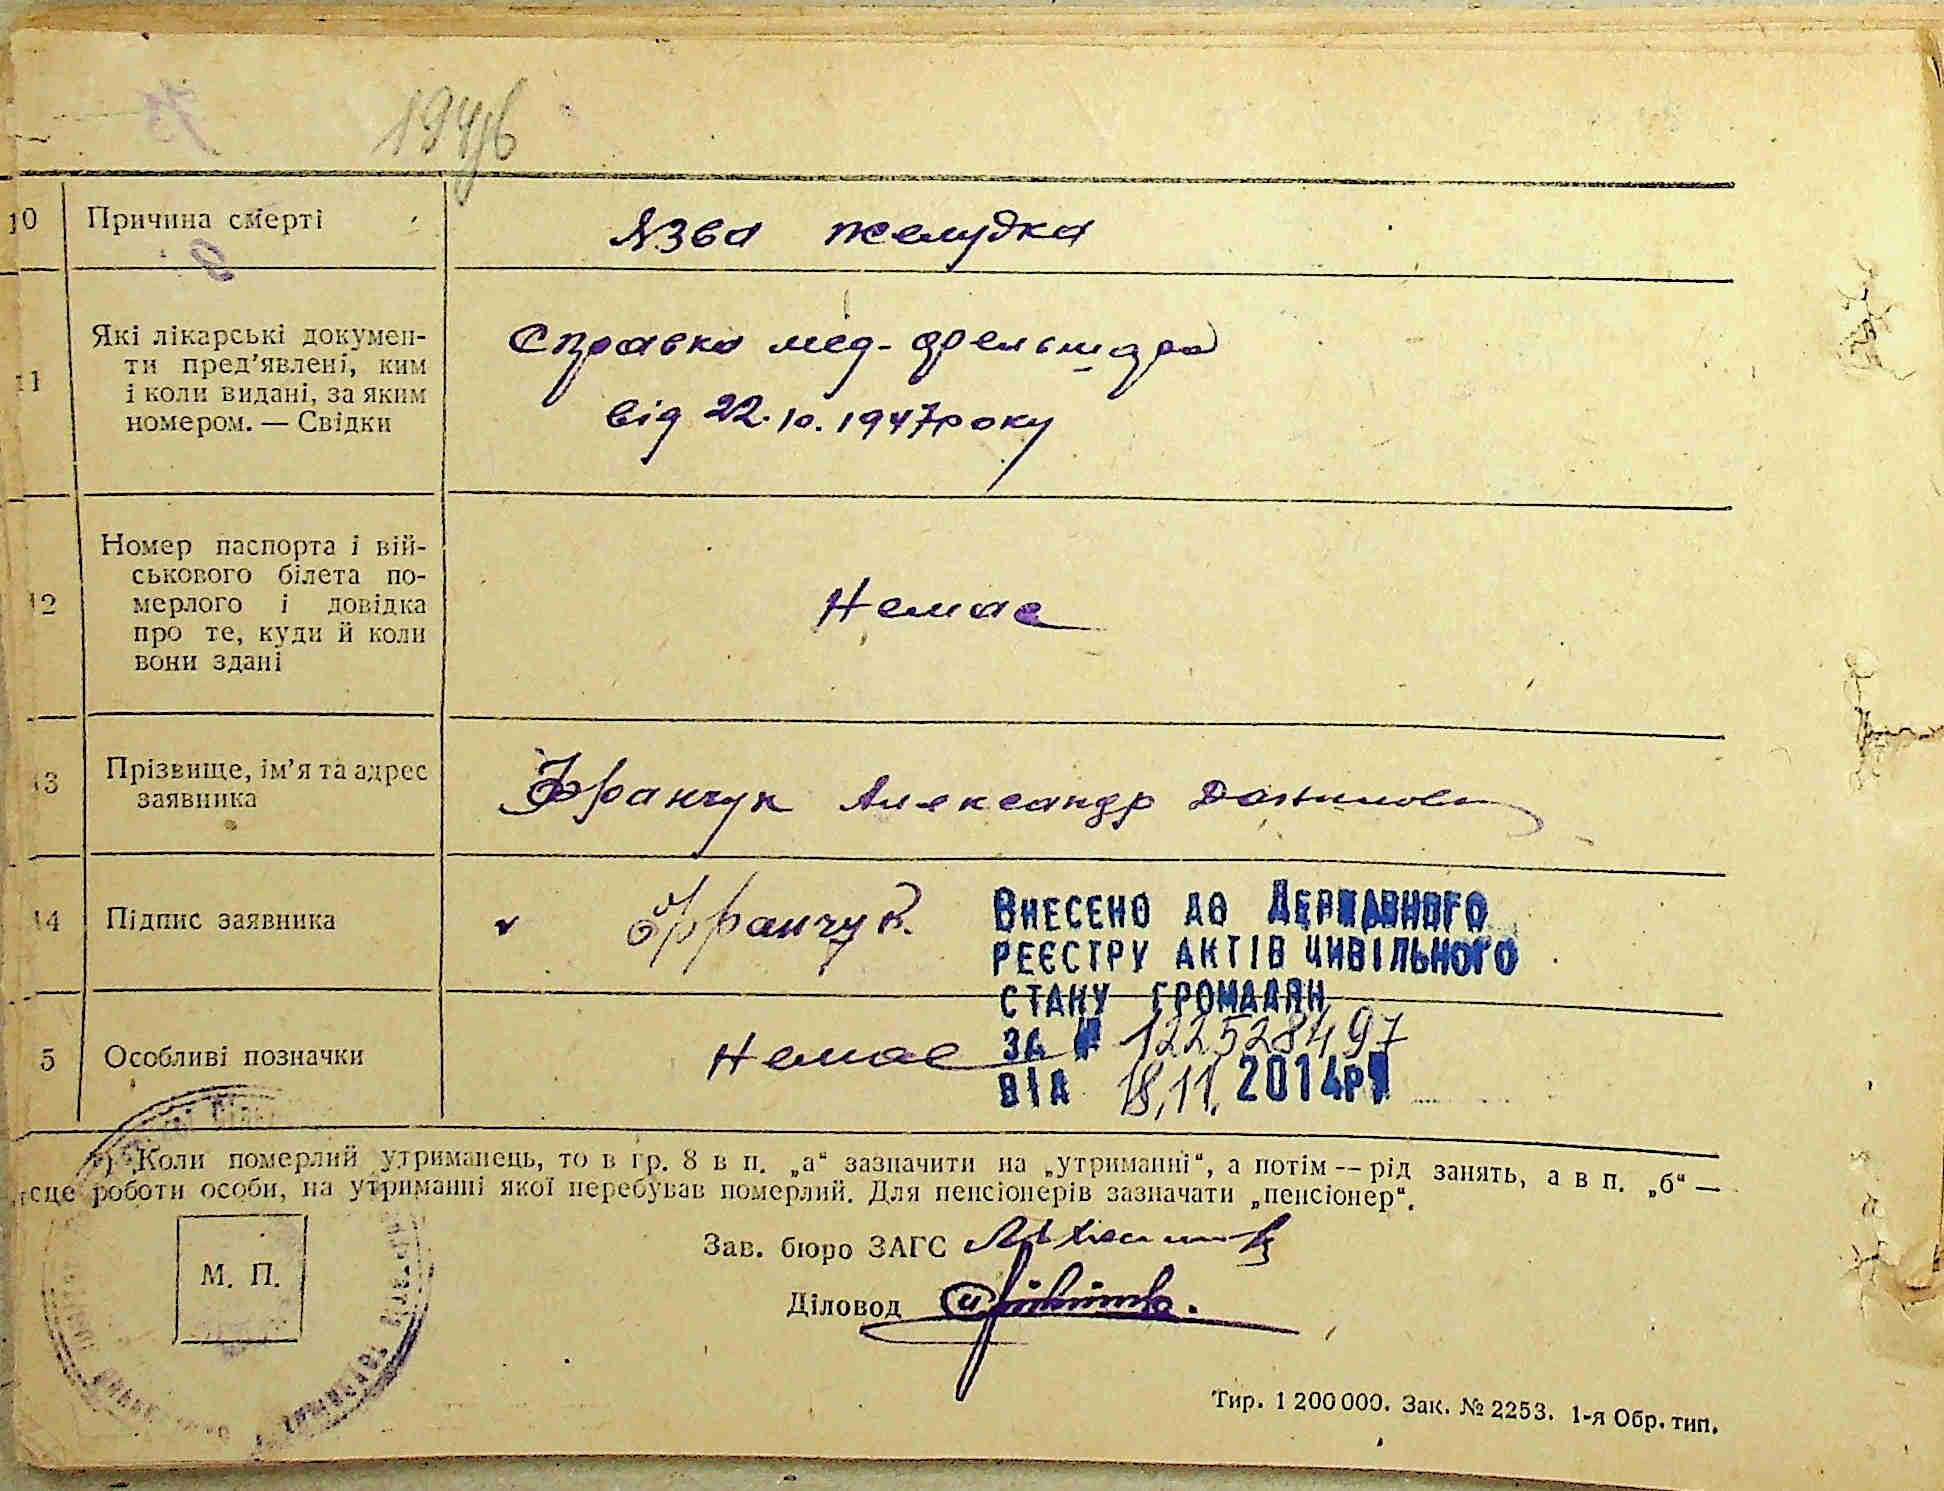 1946
10 Причина смерті
Язва желудка
11 Які лікарські докумен-
ти пред'явлені, ким
і коли видані, за яким
номером. — Свідки
Справка мед-фрельшара
від 22.10.1947 року
12 Номер паспорта і вій-
ськового білета по-
мерлого і довідка
про те, куди й коли
вони здані
Немає
13 Прізвище, ім'я та адрес
заявника
Франчук Александр Данилов
14 Підпис заявника
Франчук.
Внесено до Державного
реєстру актів цивільного
стану громадян
за № 122528497
від 18.11.2014р
5 Особливі позначки
Немає
*) Коли померлий утриманець, то в гр. 8 в п. „а“ зазначити на „утриманні“, а потім — рід занять, а в п. „б“ —
сце роботи особи, на утриманні якої перебував померлий. Для пенсіонерів зазначати „пенсіонер“.
Зав. бюро ЗАГС
М. П.
Діловод
Тир. 1 200 000. Зак. № 2253. 1-я Обр. тип.